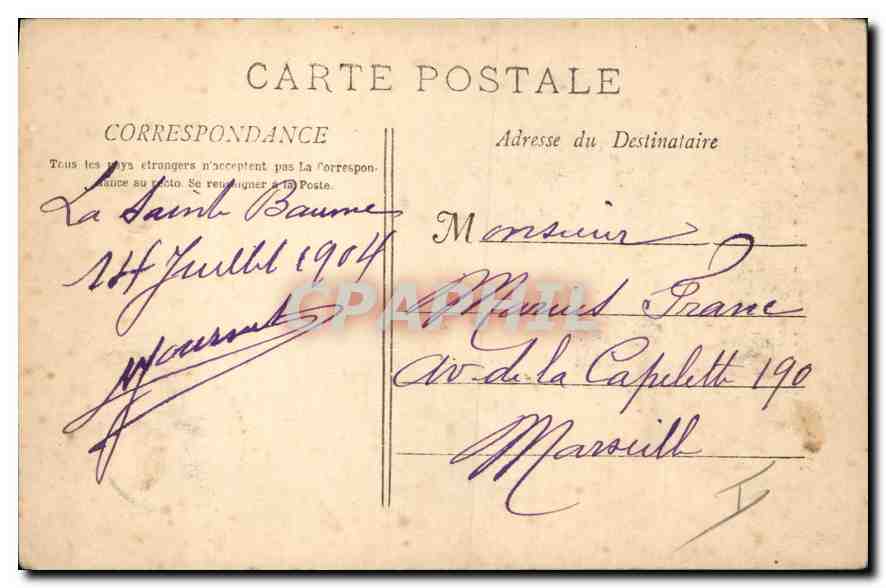 CARTE POSTALE
CORRESPONDANCE
Tous les pays étrangers n'acceptent pas La Correspon-
dance au recto. Se renseigner à la Poste.
La Sainte Baume
14 Juillet 1904
Adresse du Destinataire
Monsieur
Marius Franc
av. de la Capelette 190
Marseille
CPAPHIL